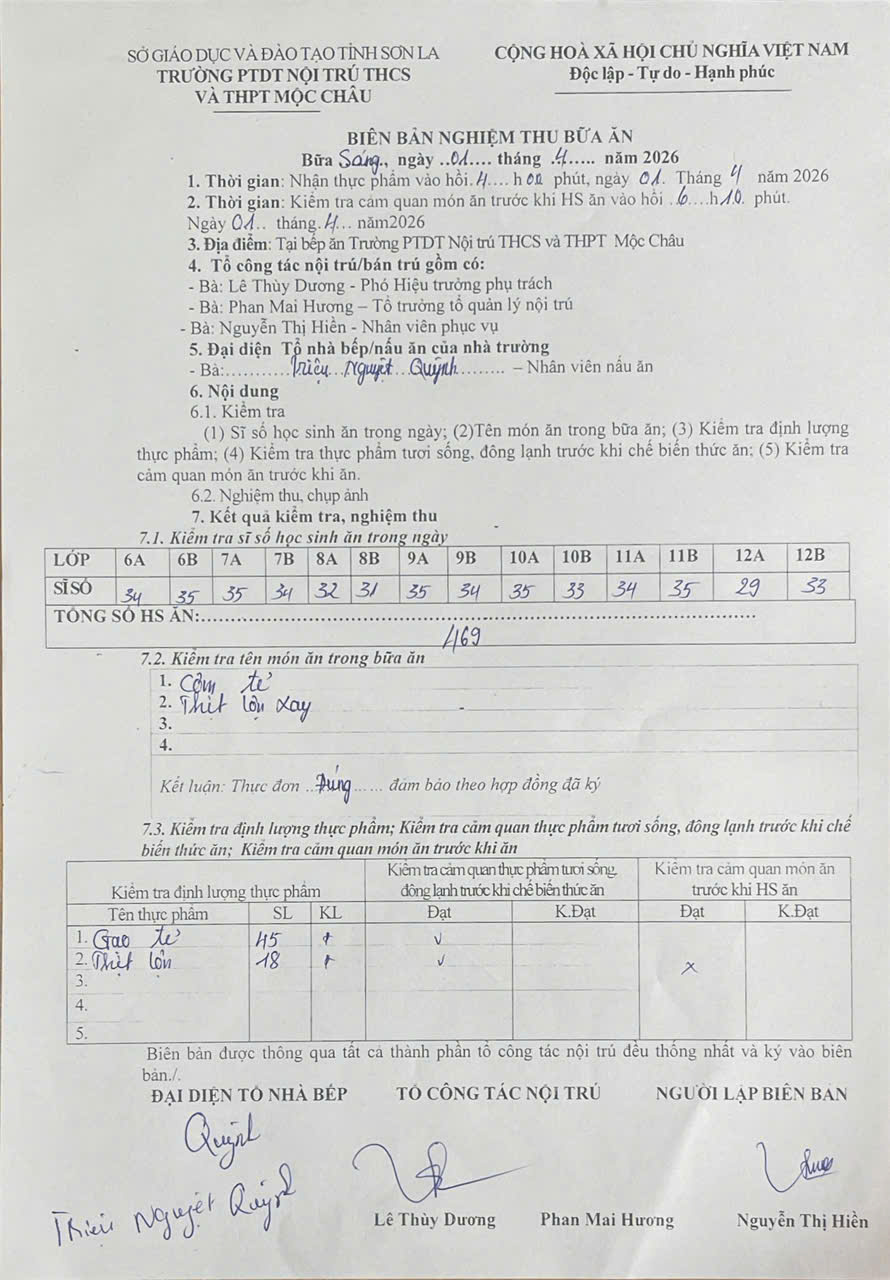 SỞ GIÁO DỤC VÀ ĐÀO TẠO TỈNH SƠN LA
TRƯỜNG PTDT NỘI TRÚ THCS
VÀ THPT MỘC CHÂU
CỘNG HOÀ XÃ HỘI CHỦ NGHĨA VIỆT NAM
Độc lập - Tự do - Hạnh phúc
BIÊN BẢN NGHIỆM THU BỮA ĂN
Bữa Sáng., ngày ..01.... tháng .4..... năm 2026
1. Thời gian: Nhận thực phẩm vào hồi.4.... h00 phút, ngày 01. Tháng 4 năm 2026
2. Thời gian: Kiểm tra cảm quan món ăn trước khi HS ăn vào hồi ..6....h10. phút.
Ngày 01.. tháng.4... năm2026
3. Địa điểm: Tại bếp ăn Trường PTDT Nội trú THCS và THPT Mộc Châu
4. Tổ công tác nội trú/bán trú gồm có:
- Bà: Lê Thùy Dương - Phó Hiệu trưởng phụ trách
- Bà: Phan Mai Hương – Tổ trưởng tổ quản lý nội trú
- Bà: Nguyễn Thị Hiền - Nhân viên phục vụ
5. Đại diện Tổ nhà bếp/nấu ăn của nhà trường
- Bà:...........Triệu...Nguyệt...Quỳnh......... – Nhân viên nấu ăn
6. Nội dung
6.1. Kiểm tra
(1) Sĩ số học sinh ăn trong ngày; (2)Tên món ăn trong bữa ăn; (3) Kiểm tra định lượng
thực phẩm; (4) Kiểm tra thực phẩm tươi sống, đông lạnh trước khi chế biến thức ăn; (5) Kiểm tra
cảm quan món ăn trước khi ăn.
6.2. Nghiệm thu, chụp ảnh
7. Kết quả kiểm tra, nghiệm thu
7.1. Kiểm tra sĩ số học sinh ăn trong ngày
LỚP 6A 6B 7A 7B 8A 8B 9A 9B 10A 10B 11A 11B 12A 12B
SĨ SỐ 34 35 35 34 32 31 35 34 35 33 34 35 29 33
TỔNG SỐ HS ĂN:..........
469
7.2. Kiểm tra tên món ăn trong bữa ăn
1. Cơm tẻ
2. Thịt lợn xay
3.
4.
Kết luận: Thực đơn ..Đúng...... đảm bảo theo hợp đồng đã ký
7.3. Kiểm tra định lượng thực phẩm; Kiểm tra cảm quan thực phẩm tươi sống, đông lạnh trước khi chế
biến thức ăn; Kiểm tra cảm quan món ăn trước khi ăn
Kiểm tra định lượng thực phẩm
Kiểm tra cảm quan thực phẩm tươi sống,
đông lạnh trước khi chế biến thức ăn
Kiểm tra cảm quan món ăn
trước khi HS ăn
Tên thực phẩm SL KL Đạt K.Đạt Đạt K.Đạt
1. Gạo tẻ 45 + v
2. Thịt lợn 18 + v x
3.
4.
5.
Biên bản được thông qua tất cả thành phần tổ công tác nội trú đều thống nhất và ký vào biên
bản./.
ĐẠI DIỆN TỔ NHÀ BẾP TỔ CÔNG TÁC NỘI TRÚ NGƯỜI LẬP BIÊN BẢN
Quỳnh
Triệu Nguyệt Quỳnh
Lê Thùy Dương Phan Mai Hương Nguyễn Thị Hiền